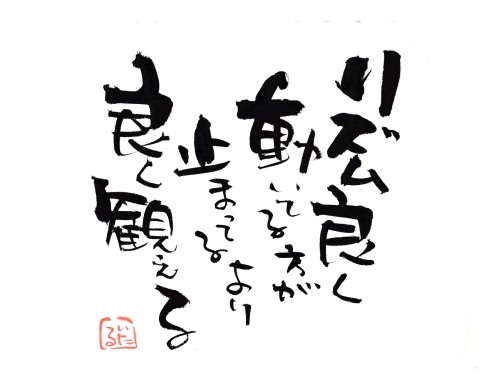 リズム良く
動いてる方が
止まってるより
良く観える